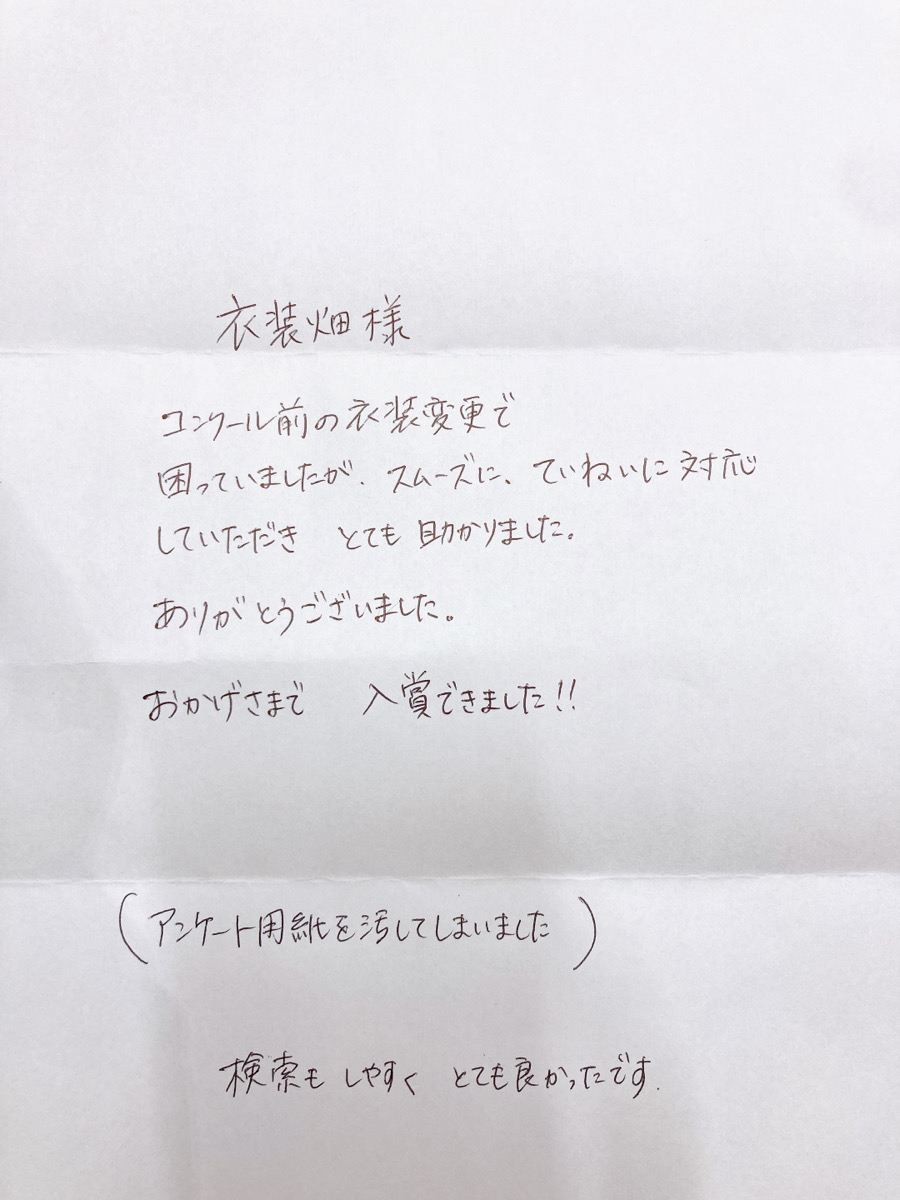 衣装畑様
コンクール前の衣装変更で
困っていましたが、スムーズに、ていねいに対応
していただき とても助かりました。
ありがとうございました。
おかげさまで 入賞できました!!
(アンケート用紙を汚してしまいました)
検索もしやすく とても良かったです.